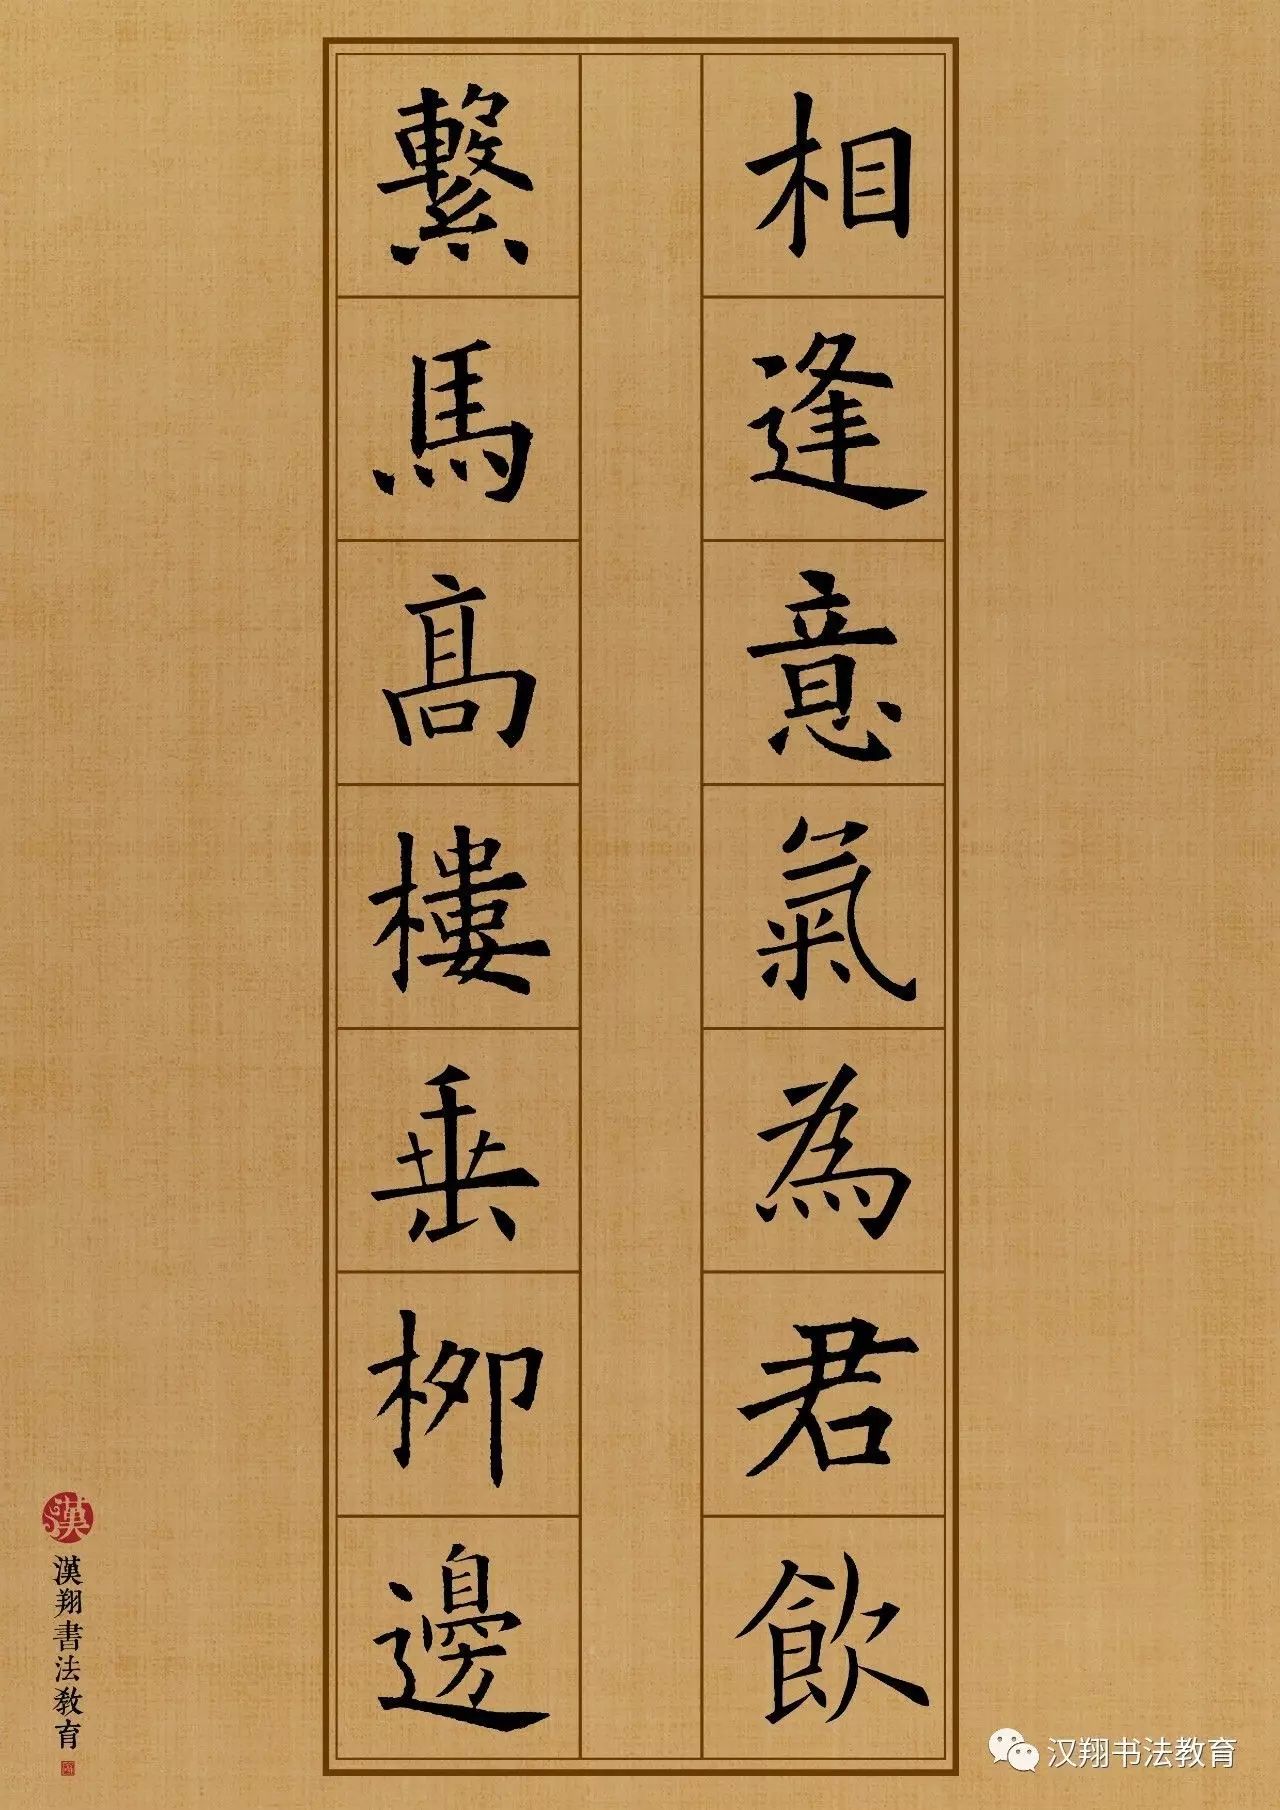 相逢意氣為君飲
繫馬高樓垂柳邊
漢
漢翔書法教育
汉翔书法教育